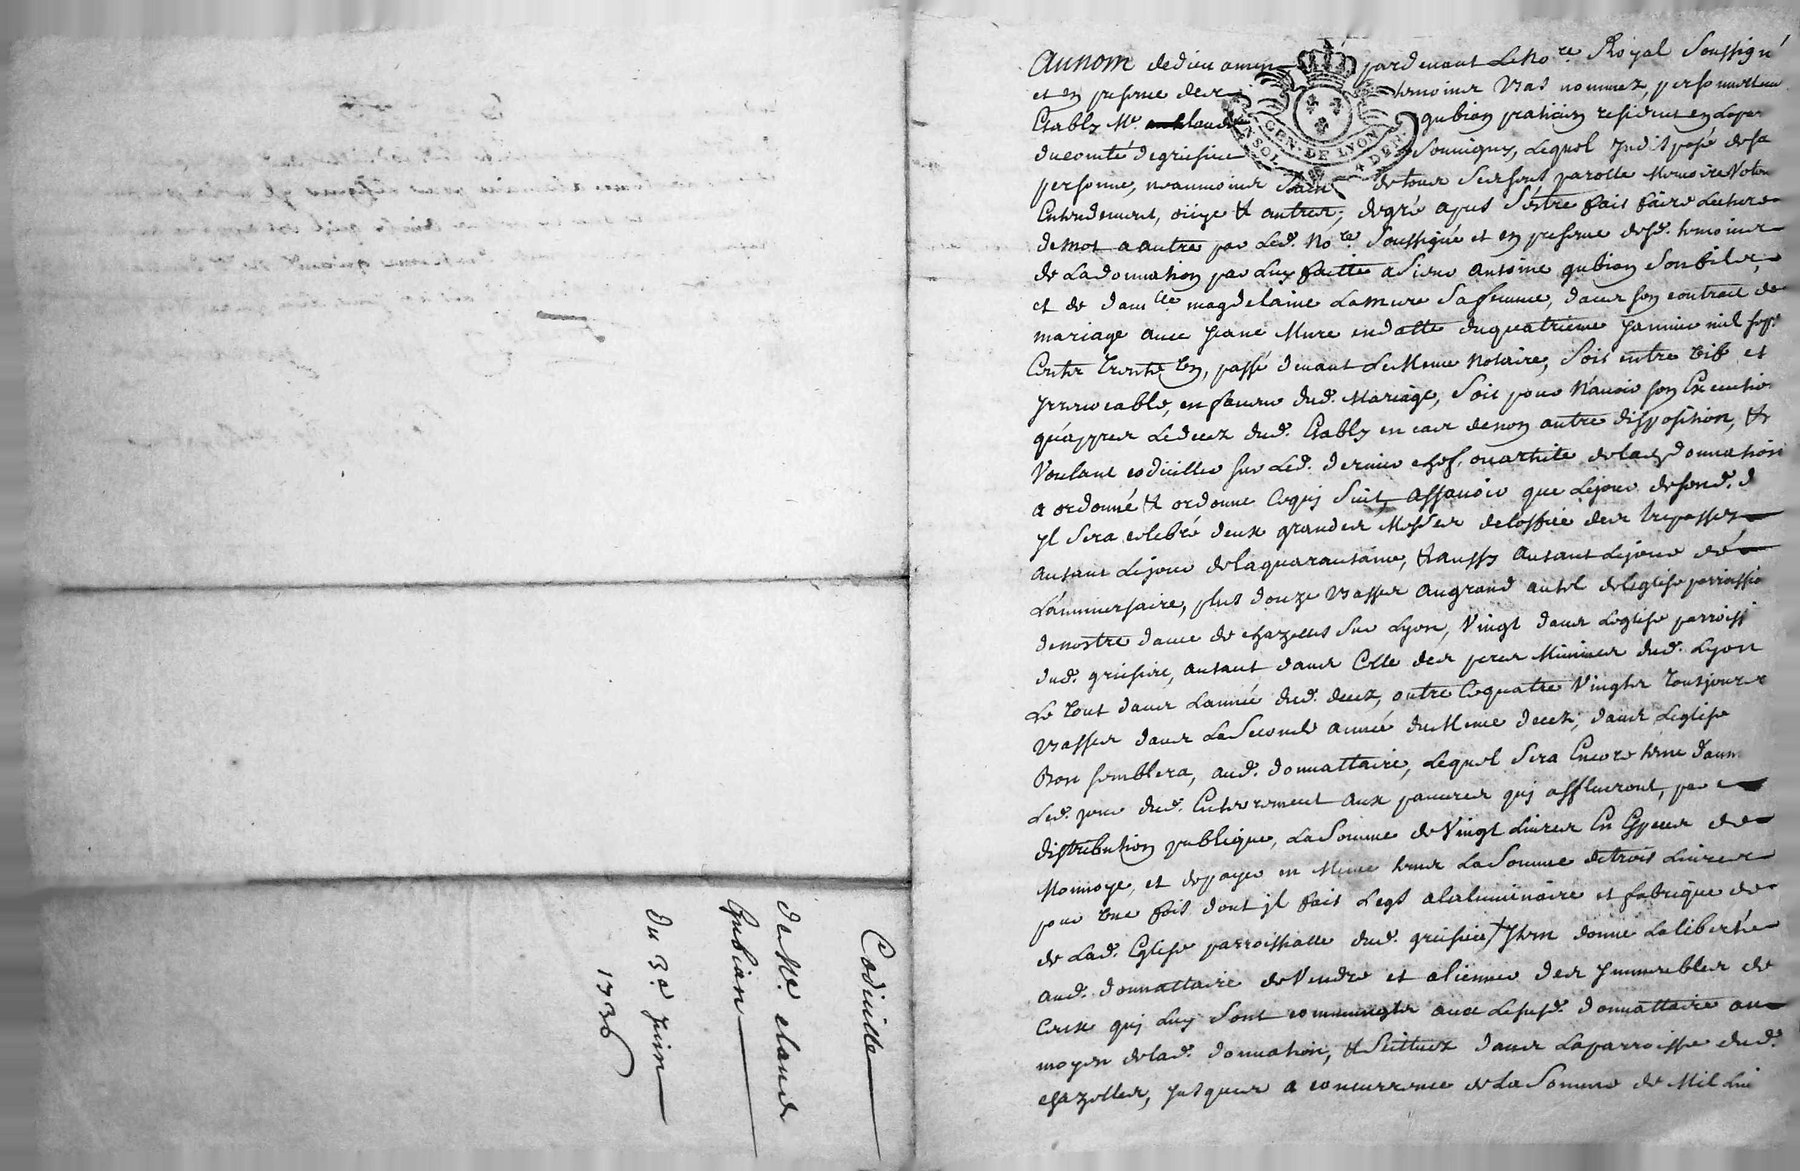 Codicille
de Me. claude
Gubian
du 3e. Juin
1736
Au nom de dieu amen pardevant Le No.re Royal soussigné
et en presence des temoins bas nommez, personnellem
Estably Me. claude gubian praticien resident en la par
du comté de griesieu Souvigny, Lequel indisposé de sa
personne, neanmoins sain de tous ses sens parolle Memoire Veüe
Entendement, oüye & autres, de gré apres s'estre fait faire Lecture
de mot a autre par Led. No.re soussigné et en presence desd. temoins
de La donnation par Luy faitte a sieur antoine gubian son fils,
et de dam.lle magdelaine Lamure sa femme, dans son contrait de
mariage avec jeane Mure en datte du quatrieme janvier mil sept
Cents Trente Un, passé devant Le Meme Notaire, soit entre vifs et
jrrevocable, en faveur dud. Mariage, soit pour N'avoir son Execution
qu'apprez Le decez dud. Estably en cas de non autre disposition, &
Voulant codiciller sur Led. dernier chef, ou article de lad. donnation
a ordonné & ordonne Ce quj suit, assavoir que Le jour de son d. d
jl sera celebré deux grandes Messes de l'office des trepassez
autant Le jour de la quarantaine, & aussy autant Le jour de
L'anniversaire, plus douze basses au grand autel de l'eglise parroissia
de nostre dame de chazelles sur Lyon, Vingt dans L'eglise parroissi
dud. griesieu, autant dans Celle des peres Minimes dud. Lyon
Le tout dans L'année dud. decez, outre Ce quatre Vingts toutjours
basses dans La seconde année du Meme decez, dans L'eglise
Bon semblera, aud. donnattaire, Lequel sera Encore tenu d'aum
Led. jour dud. Enterrement aux pauvres quj afflueront, par
distribution publique, La somme de Vingt Livres En Especes de
Monnoye, et de payer en Meme tems La somme de trois Livres
pour une fois dont jl fait Legs a la luminaire et fabrique de
de Lad. Eglise parroissialle dud. griesieu / Item donne La liberté
aud. donnattaire de Vendre et aliener des jmmeubles de
Ceux quj Luy sont communs avec Le susd. donnattaire au
moyen de lad. donnation, & scituez dans La parroisse dud.
chazelles, jusques a concurrence de La somme de Mil Liv